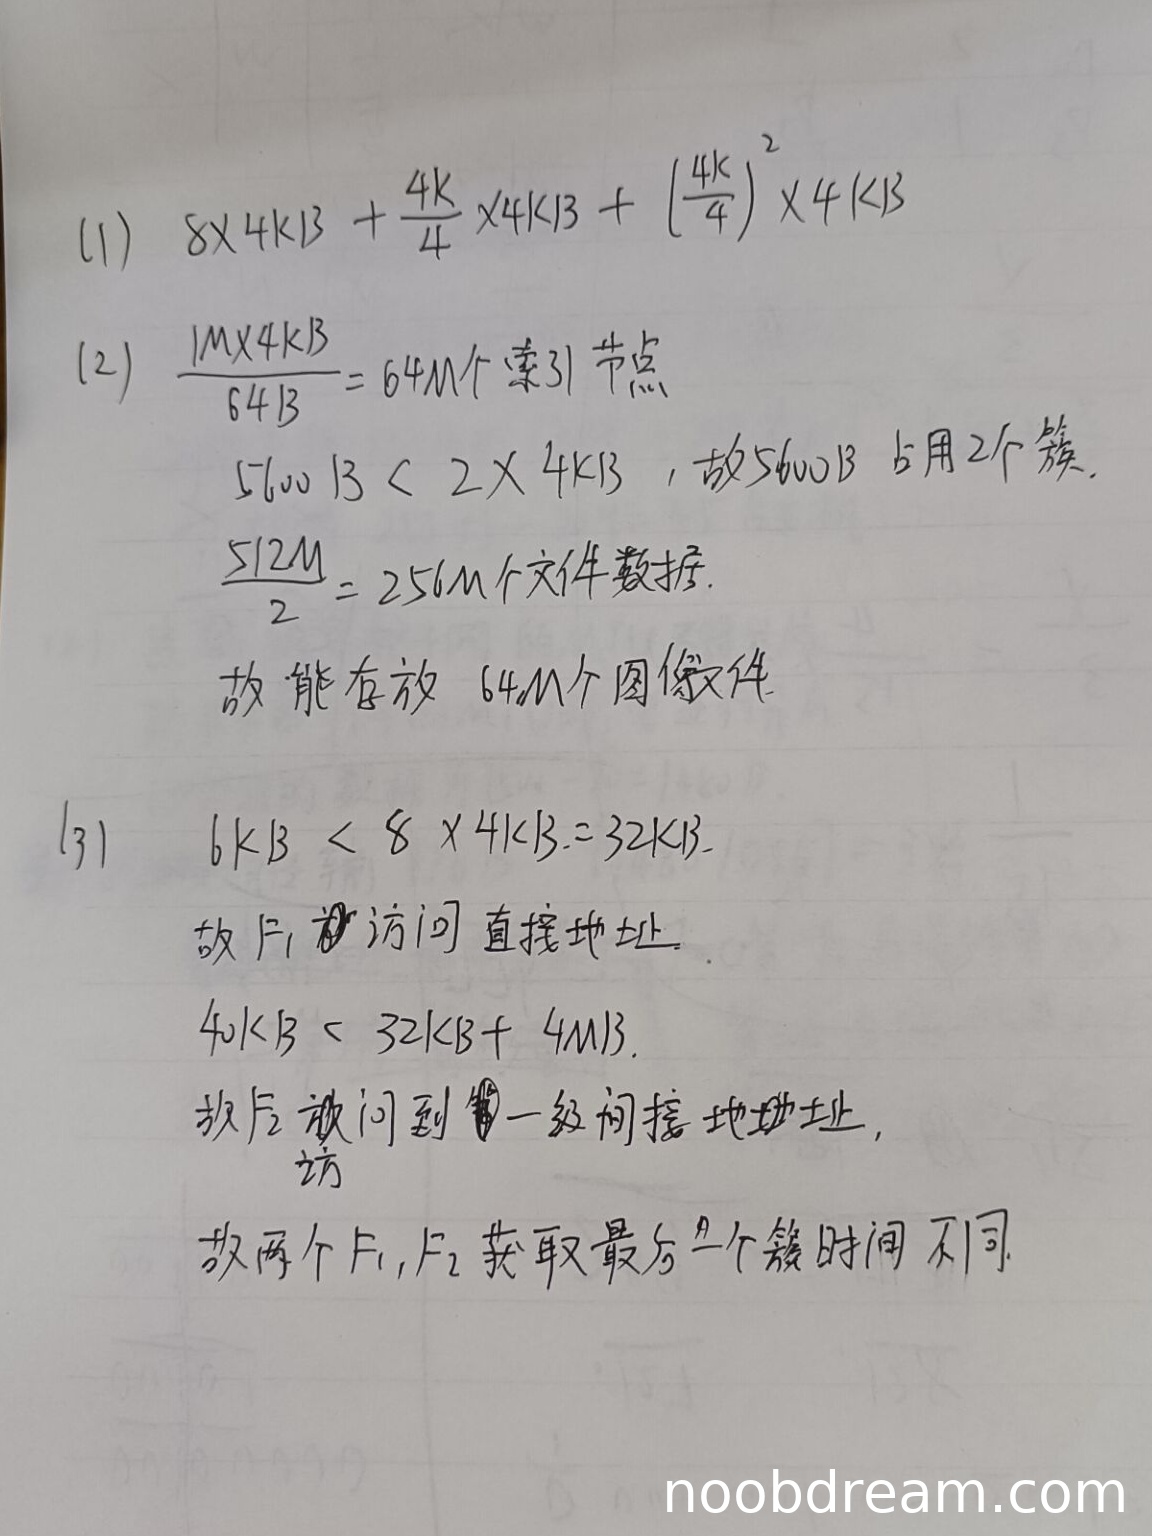 (1) 8×4KB + 4K/4 ×4KB + (4K/4)² ×4KB
(2) 1M×4KB/64B = 64M个索引节点
5600B < 2×4KB，故5600B占用2个簇.
512M/2 = 256M个文件数据.
故能存放 64M个图像文件.
(3) 6KB < 8×4KB.=32KB.
故F₁访问直接地址.
40KB < 32KB+ 4MB.
故F₂ 问到一级间接地地址，
访
故两个F₁，F₂获取最后一个簇时间不同.
noobdream.com